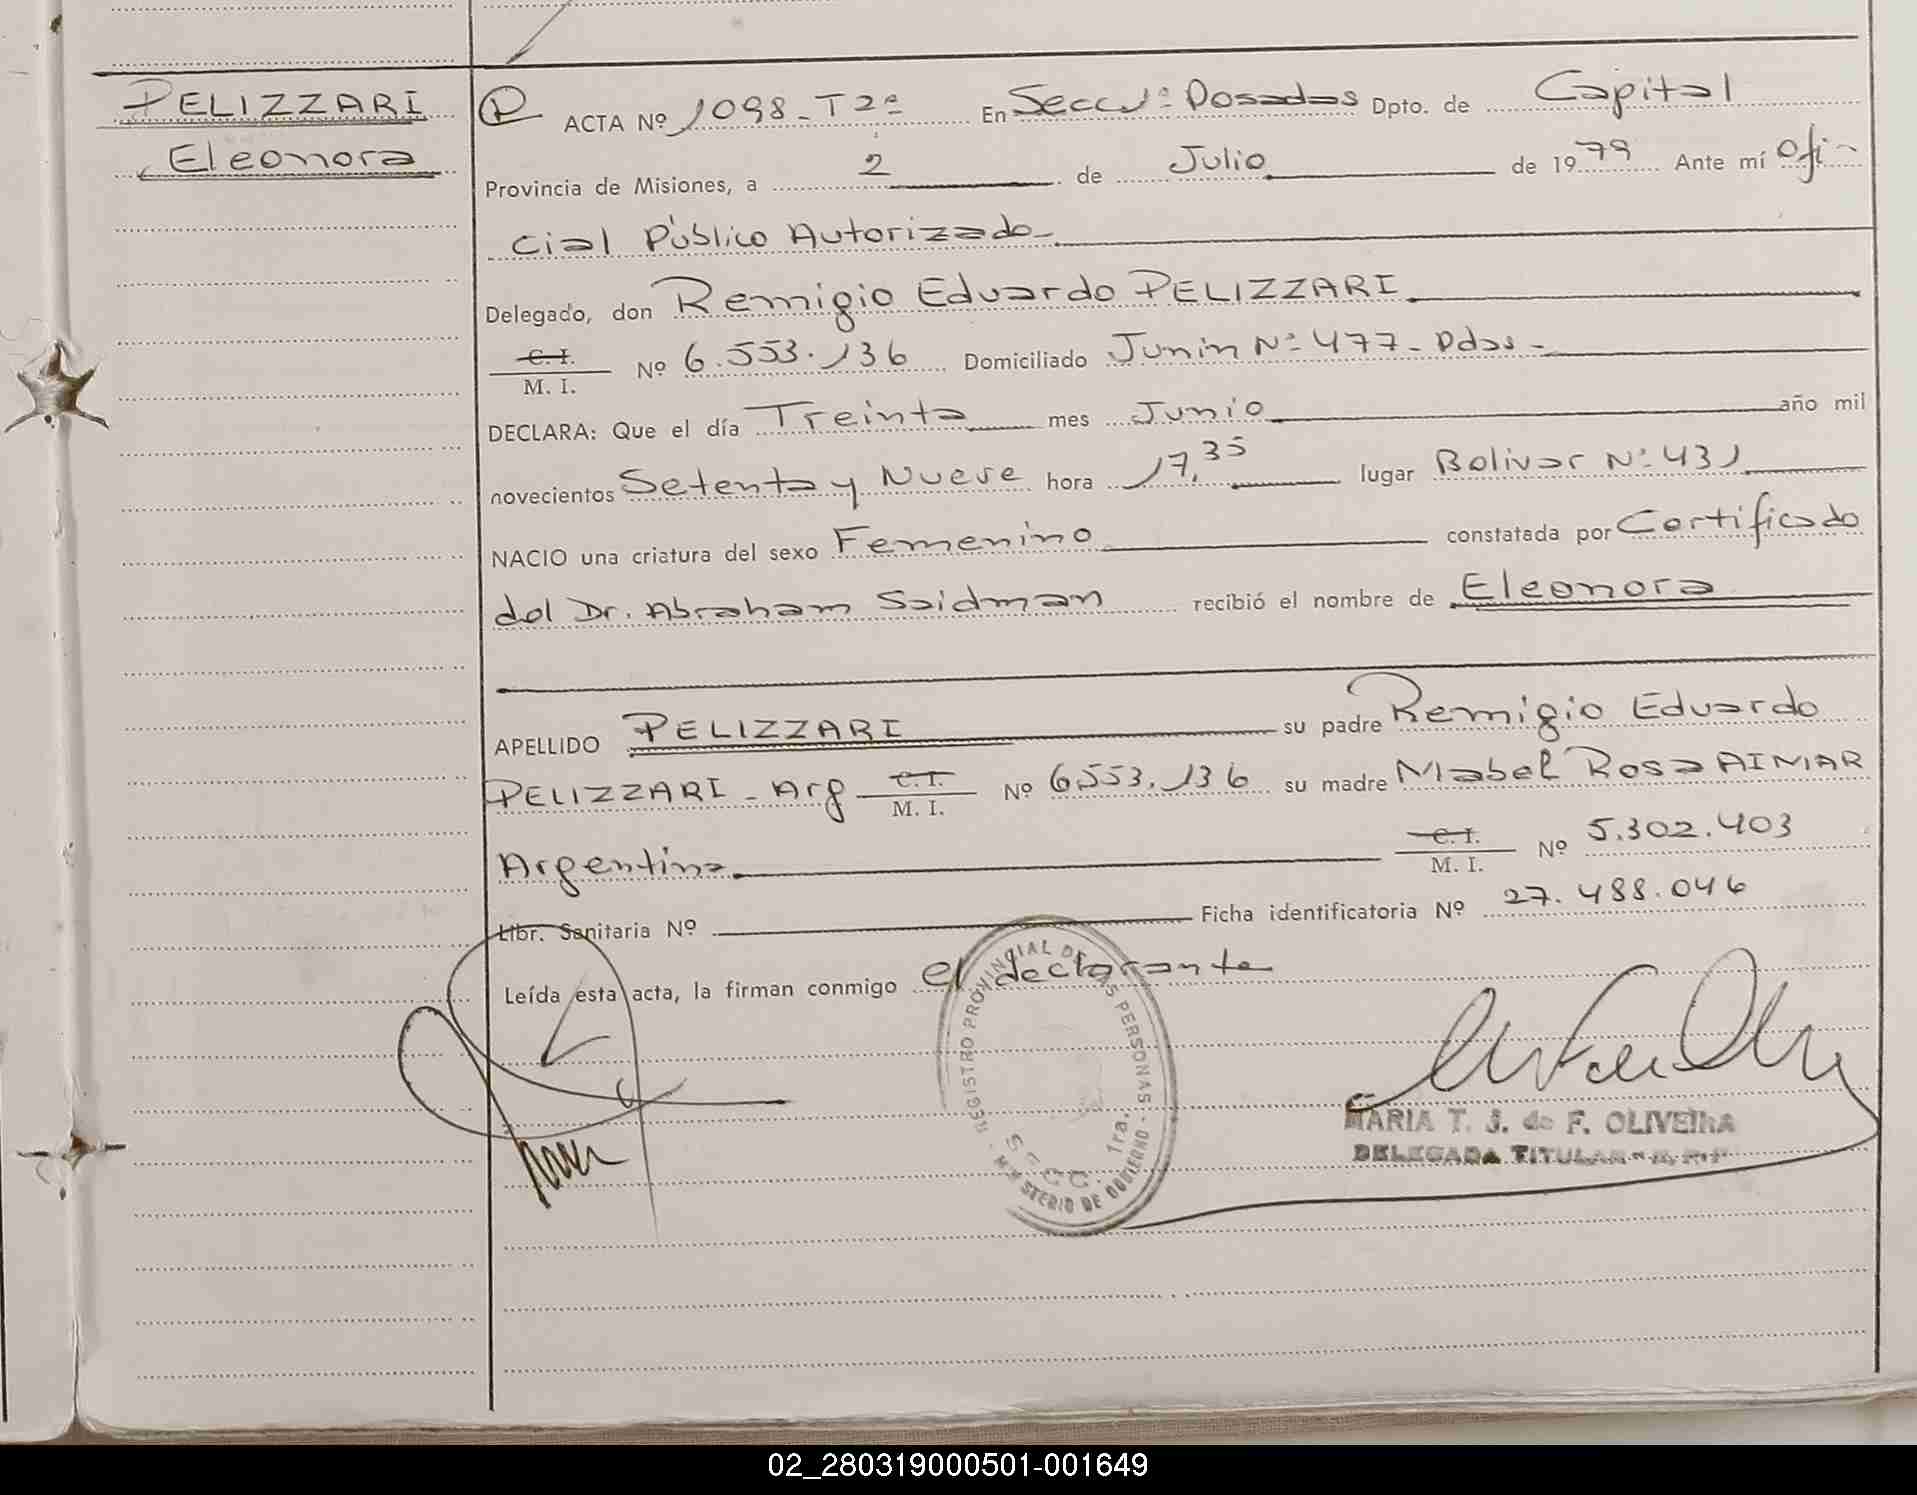 PELIZZARI
Eleonora
P ACTA Nº 1098 - T2º En Secc 1ª Posadas Dpto. de Capital
Provincia de Misiones, a 2 de Julio de 1979 Ante mí Ofi-
cial Público Autorizado
Delegado, don Remigio Eduardo PELIZZARI
C. I.
M. I. Nº 6.553.136 Domiciliado Junin Nº 477 - Pdas -
DECLARA: Que el día Treinta mes Junio año mil
novecientos Setenta y Nueve hora 17,35 lugar Bolivar Nº 431
NACIO una criatura del sexo Femenino constatada por Certificado
del Dr. Abraham Saidman recibió el nombre de Eleonora
APELLIDO PELIZZARI su padre Remigio Eduardo
PELIZZARI - Arg C. I. M. I. Nº 6.553.136 su madre Mabel Rosa AIMAR
Argentina C. I. M. I. Nº 5.302.403
Libr. Sanitaria Nº Ficha identificatoria Nº 27.488.046
Leída esta acta, la firman conmigo el declarante
REGISTRO PROVINCIAL DE LAS PERSONAS - MINISTERIO DE GOBIERNO -
SECC. 1ra.
MARIA T. J. de F. OLIVEIRA
DELEGADA TITULAR
02_280319000501-001649